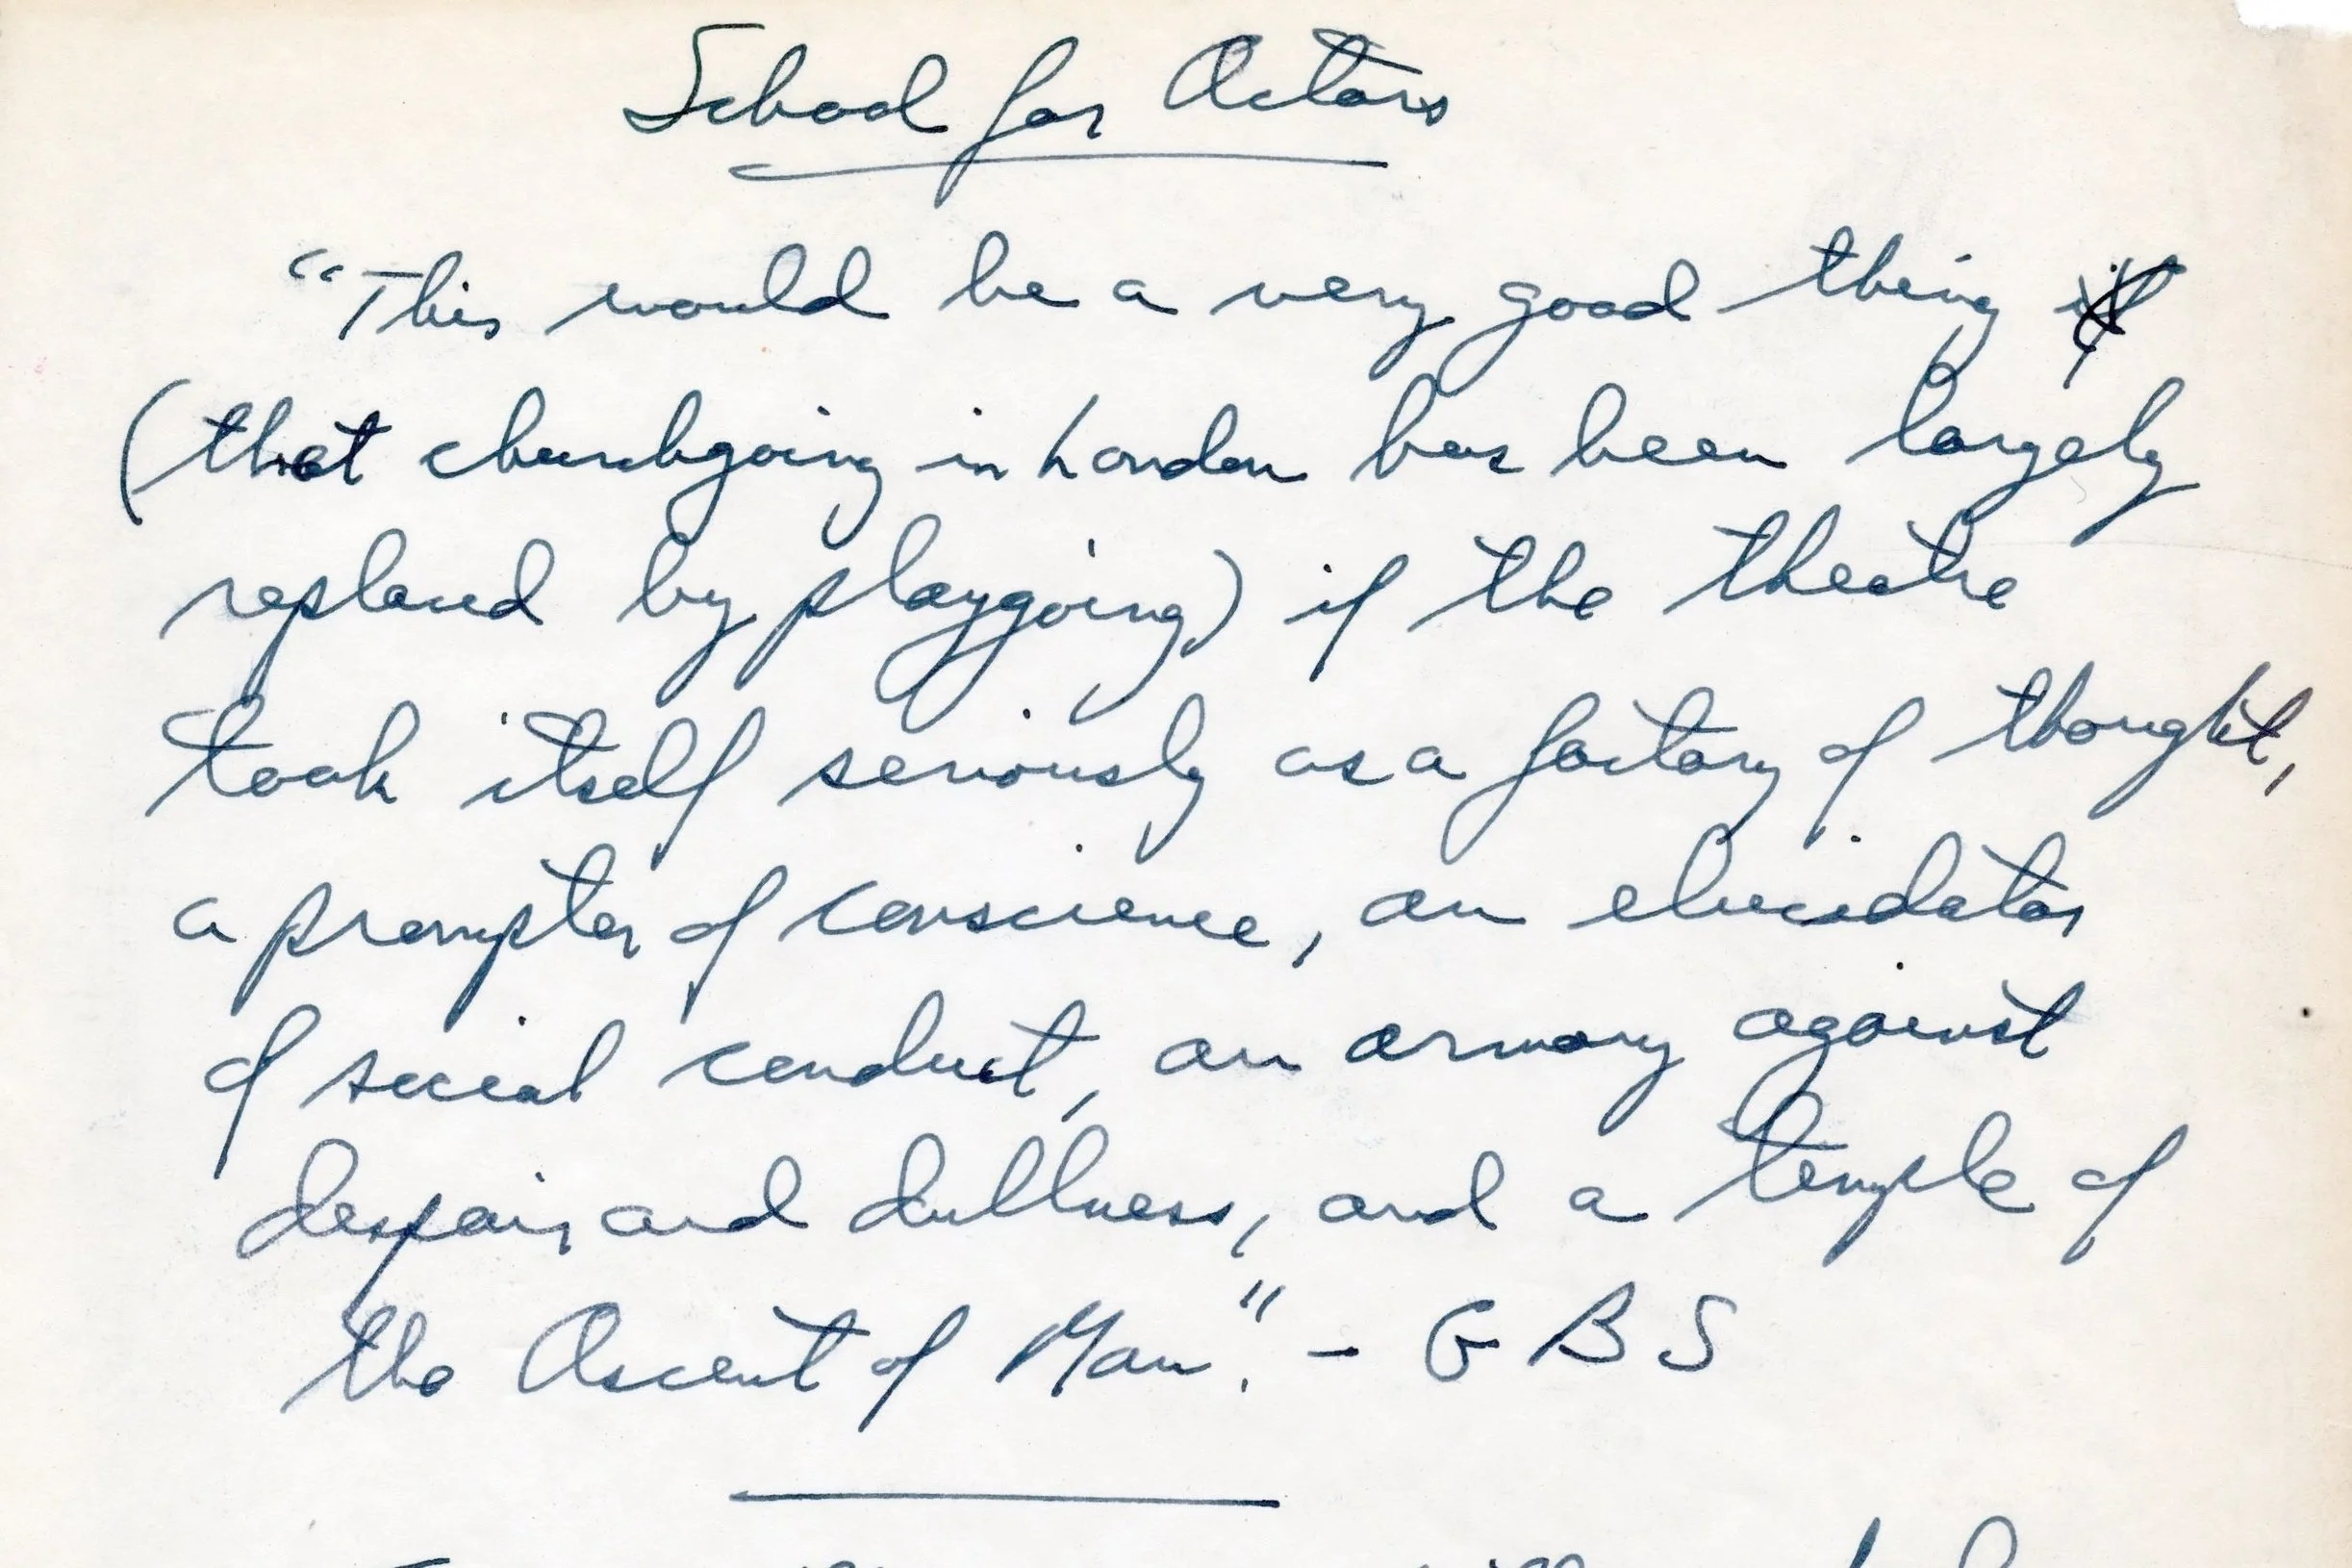 School for Actors
"This would be a very good thing if
(that churchgoing in London has been largely
replaced by playgoing) if the theatre
took itself seriously as a factory of thought,
a prompter of conscience, an elucidator
of social conduct, an armory against
despair and dullness, and a temple of
the Ascent of Man." - G B S